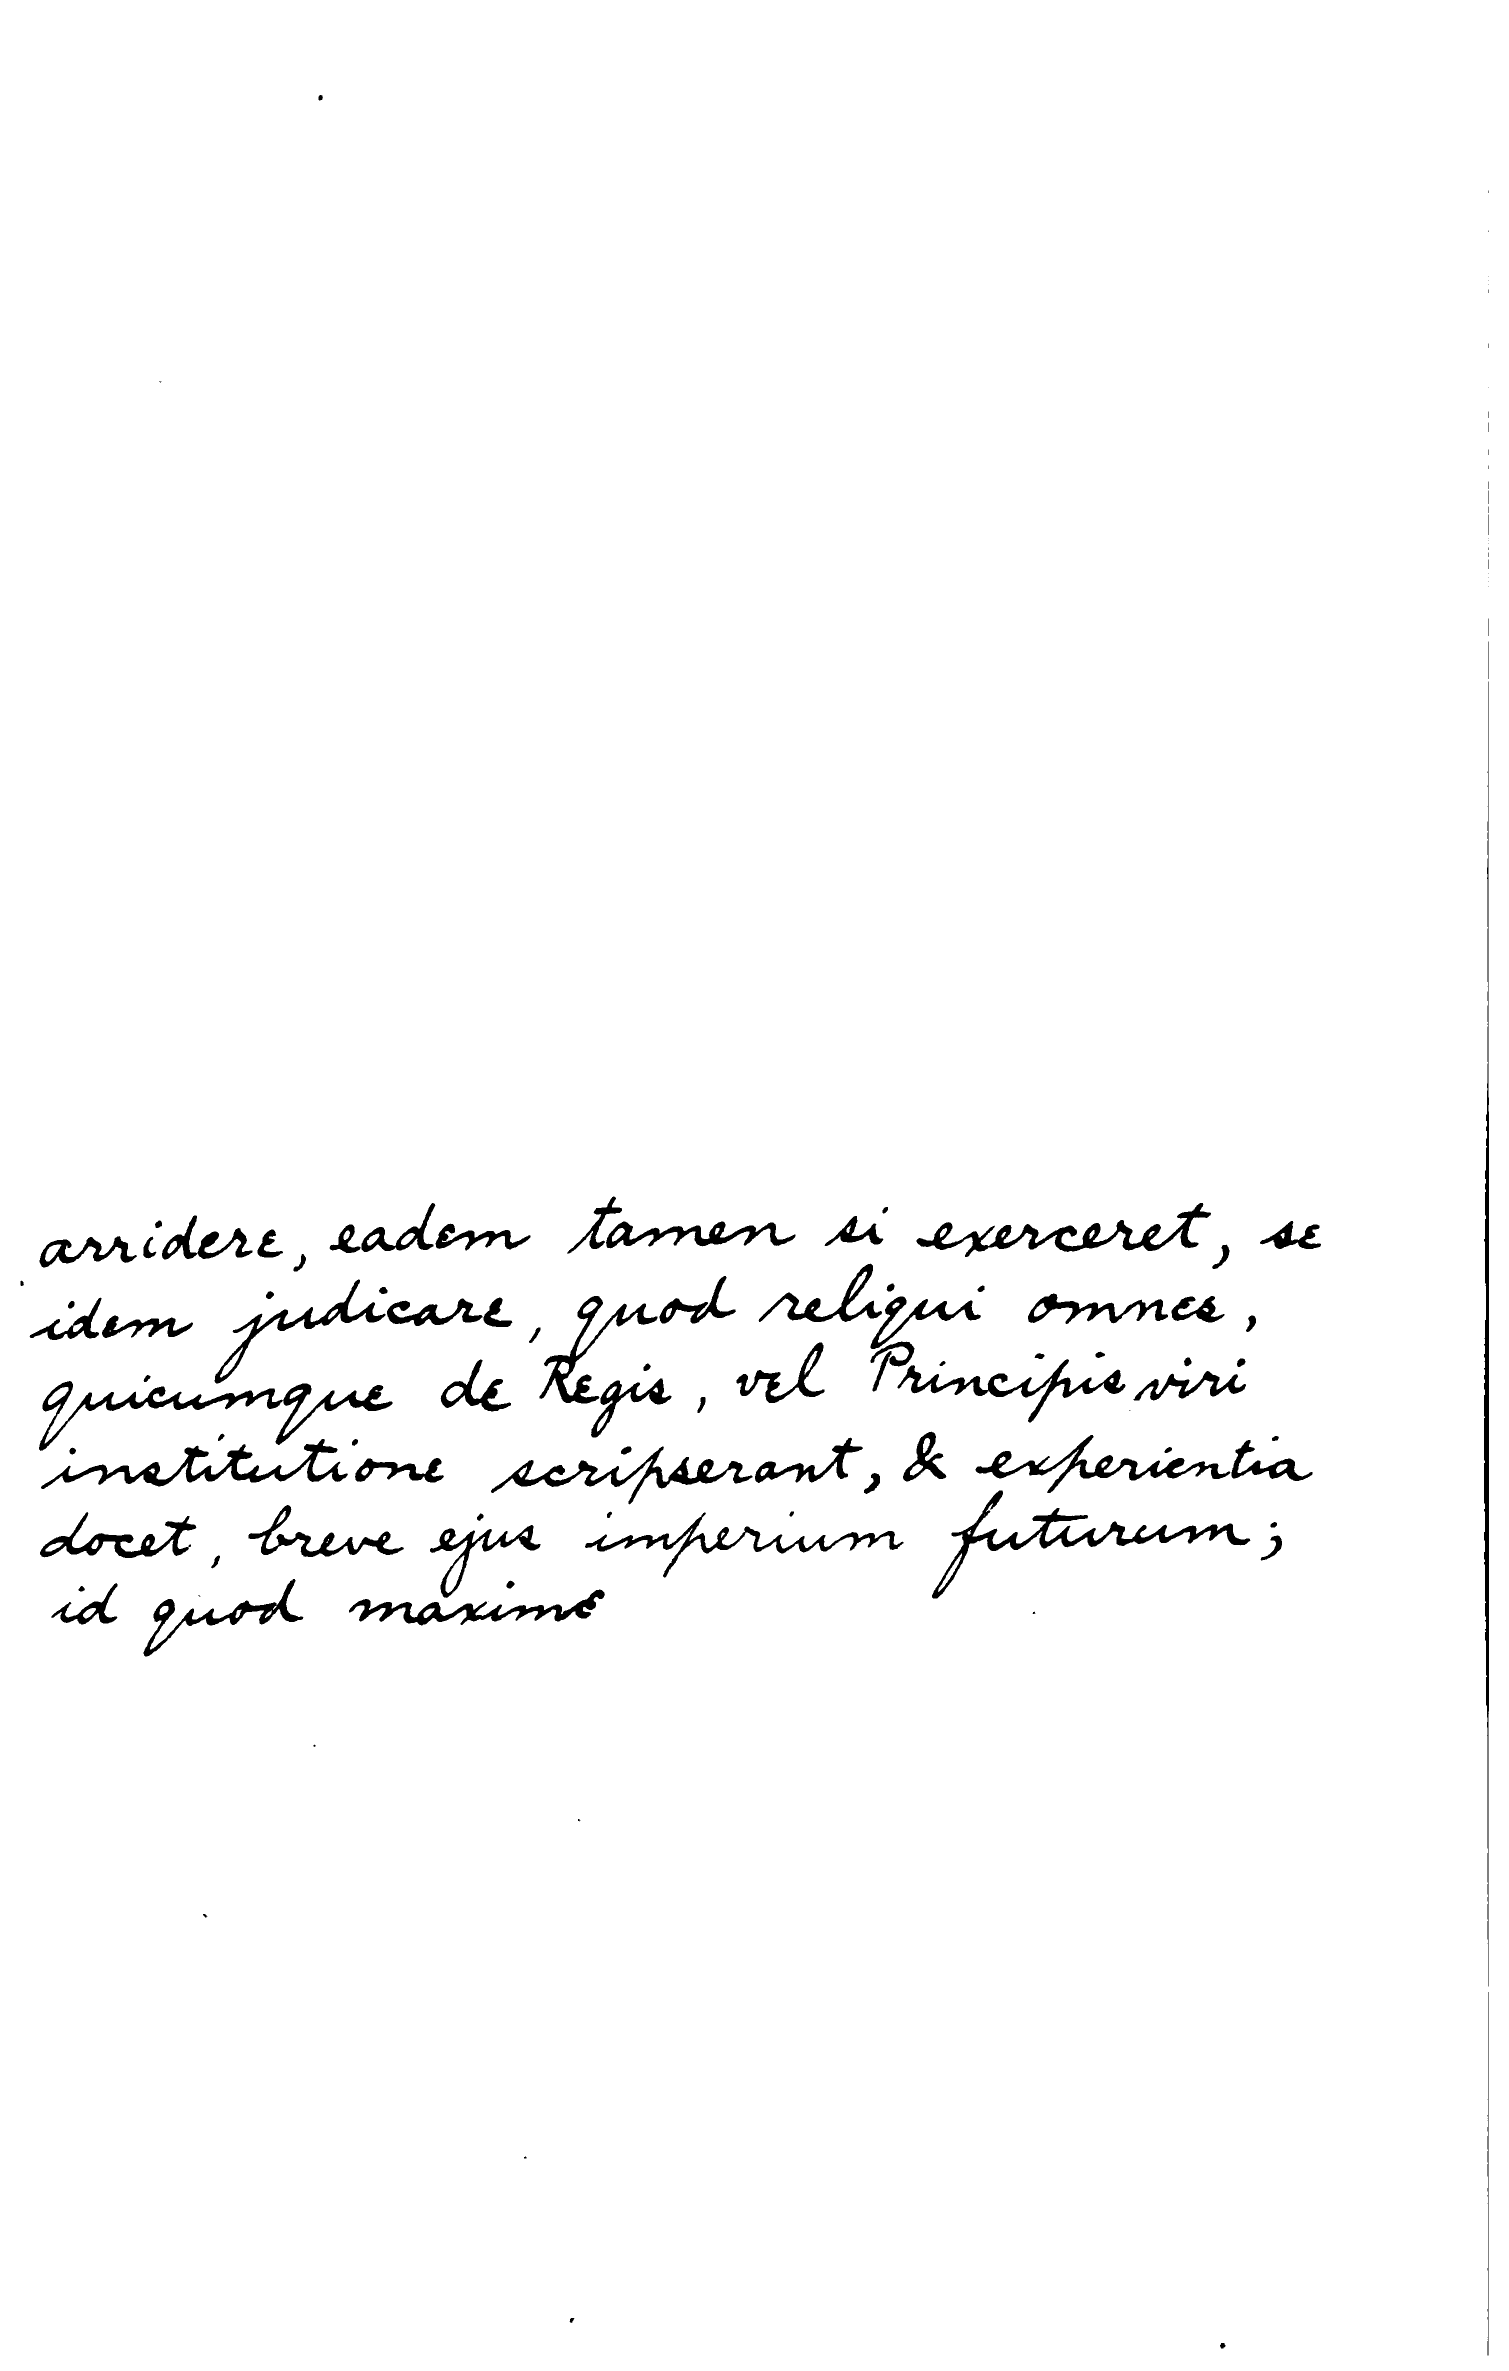 arridere, eadem tamen si exerceret, se
idem judicare, quod reliqui omnes,
quicumque de Regis, vel Principis viri
institutione scripserant, & experientia
docet, breve ejus imperium futurum;
id quod maxime